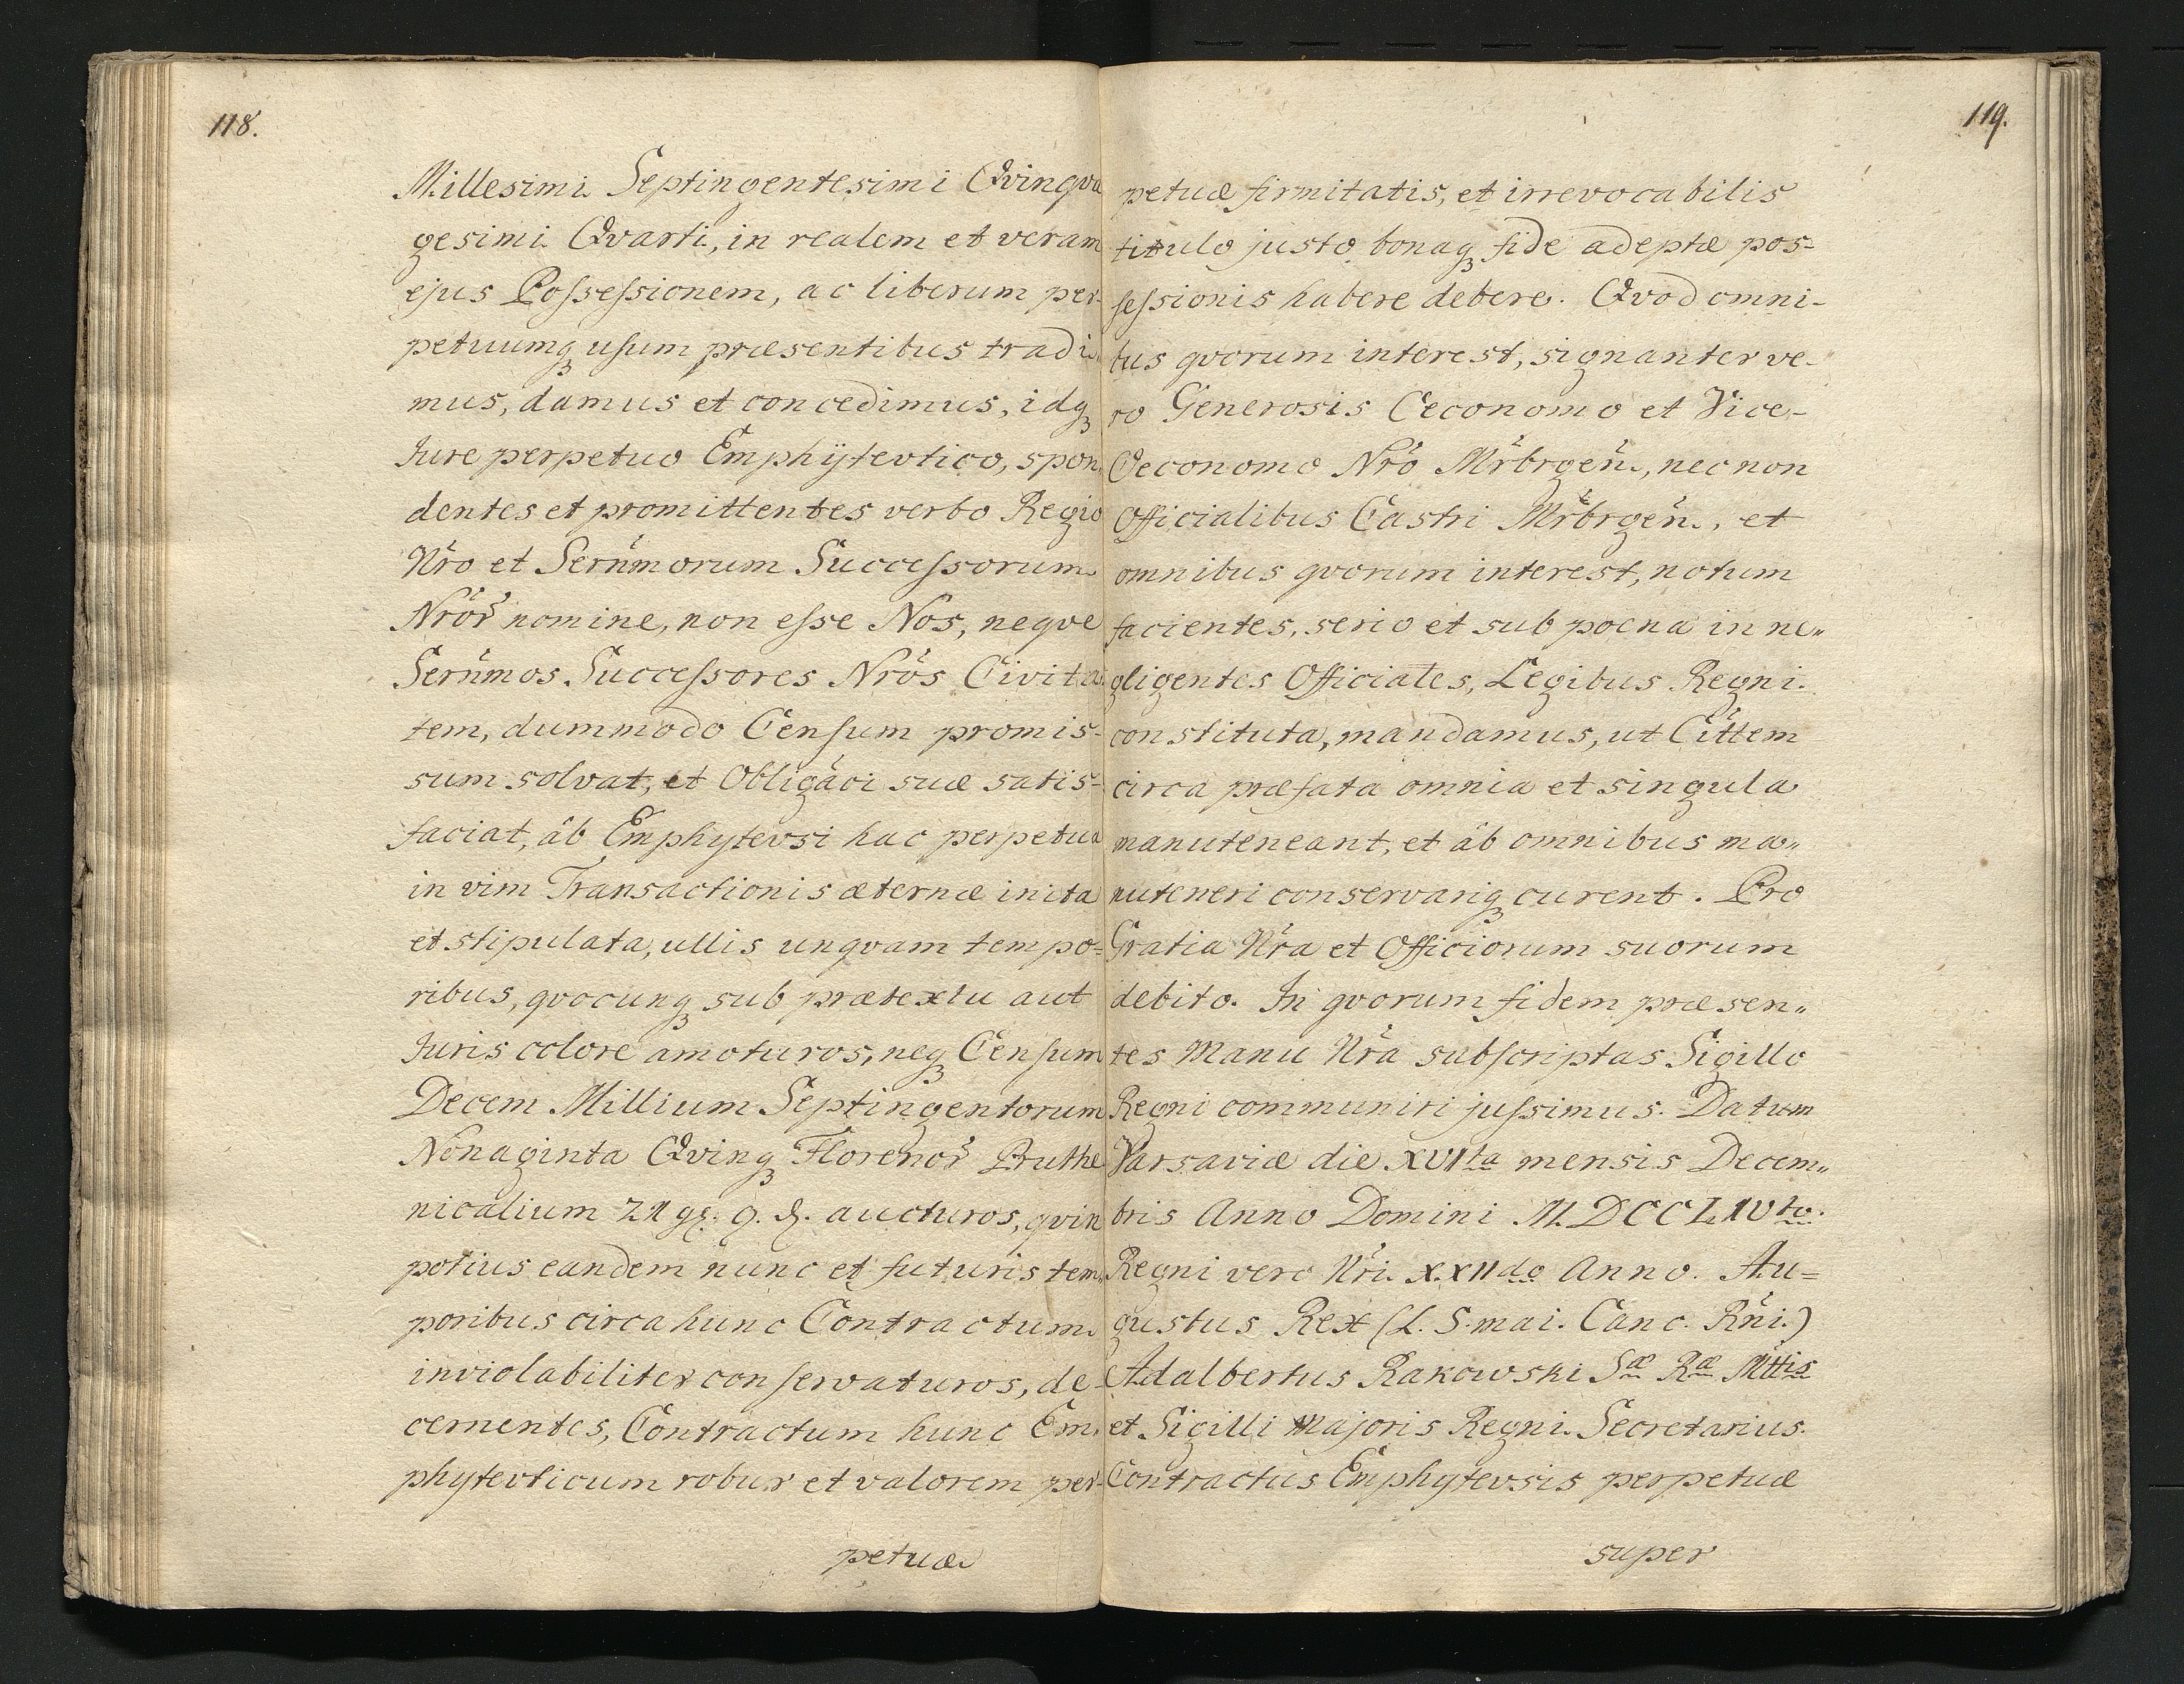 118.
Millesimi Septingentesimi Qvinqva
gesimi Qvarti, in realem et veram
ejus Poſseſsionem, ac liberum per-
petuumqꝫ uſum præsentibus tradi„
mus, damus et concedimus, idqꝫ
Jure perpetuo Emphÿtevtico, spon„
dentes et promittentes verbo Regio
Nr̃o et Serñmorum Succeſsorum
Nrõr̃ nomine, non eſse Nos, neqve
Serñmos Succeſsores Nrõs Civita„
tem, dummodo Cenſum promis-
sum solvat, et Obligãci suæ satis-
faciat, âb Emphytevsi hac perpetua
in vim Transactionis æternæ inita
et stipulata, ullis unqvam tempo=
ribus, qvocunqꝫ sub prætextu aut
Juris colore amoturos, neqꝫ Cenſum
Decem Millium Septingentorum
Nonaginta Qvinqꝫ Florenor̃ Pruthe
nicalium 21 gr. 9. ₰. aucturos, qvin
potius eandem nunc et futuris tem„
poribus circa hunc Contractum
inviolabiliter conſervaturos, de-
cernentes, Contractum hunc Em„
phytevticum robur et valorem per-
petuæ
119.
petuæ firmitatis, et irrevocabilis
titulo justo bonaqꝫ fide adeptæ pos-
ſeſsionis habere debere. Qvod omni-
bus qvorum interest, signanter ve-
ro Generosis Oeconomo et Vice-
Oeconomo Nrõ Mr̃brgeñ., nec non
Officialibus Castri Mr̃brgeñ., et
omnibus qvorum interest, notum
facientes, serio et sub poena in ne„
gligentes Officiales, Legibus Regni
constituta, mandamus, ut Citt̃em
circa præfata omnia et singula
manuteneant, et âb omnibus ma„
nuteneri conservariqꝫ curent. Pro
Gratia Nr̃a et Officiorum suorum
debito. In qvorum fidem præsen„
tes Manu Nr̃a subſcriptas Sigillo
Regni communiri juſsimus. Datum
Varsaviæ die XVIta mensis Decem„
bris Anno Domini M.DCCLIVto.
Regni vero Nr̃i XXIIdo Anno. Au=
gustus Rex (L. S. mai. Canc. Rñi.)
Adalbertus Rakowski Sæ Ræ Mttis
et Sigilli Majoris Regni Secretarius.
Contractus Emphytevsis perpetuæ
super